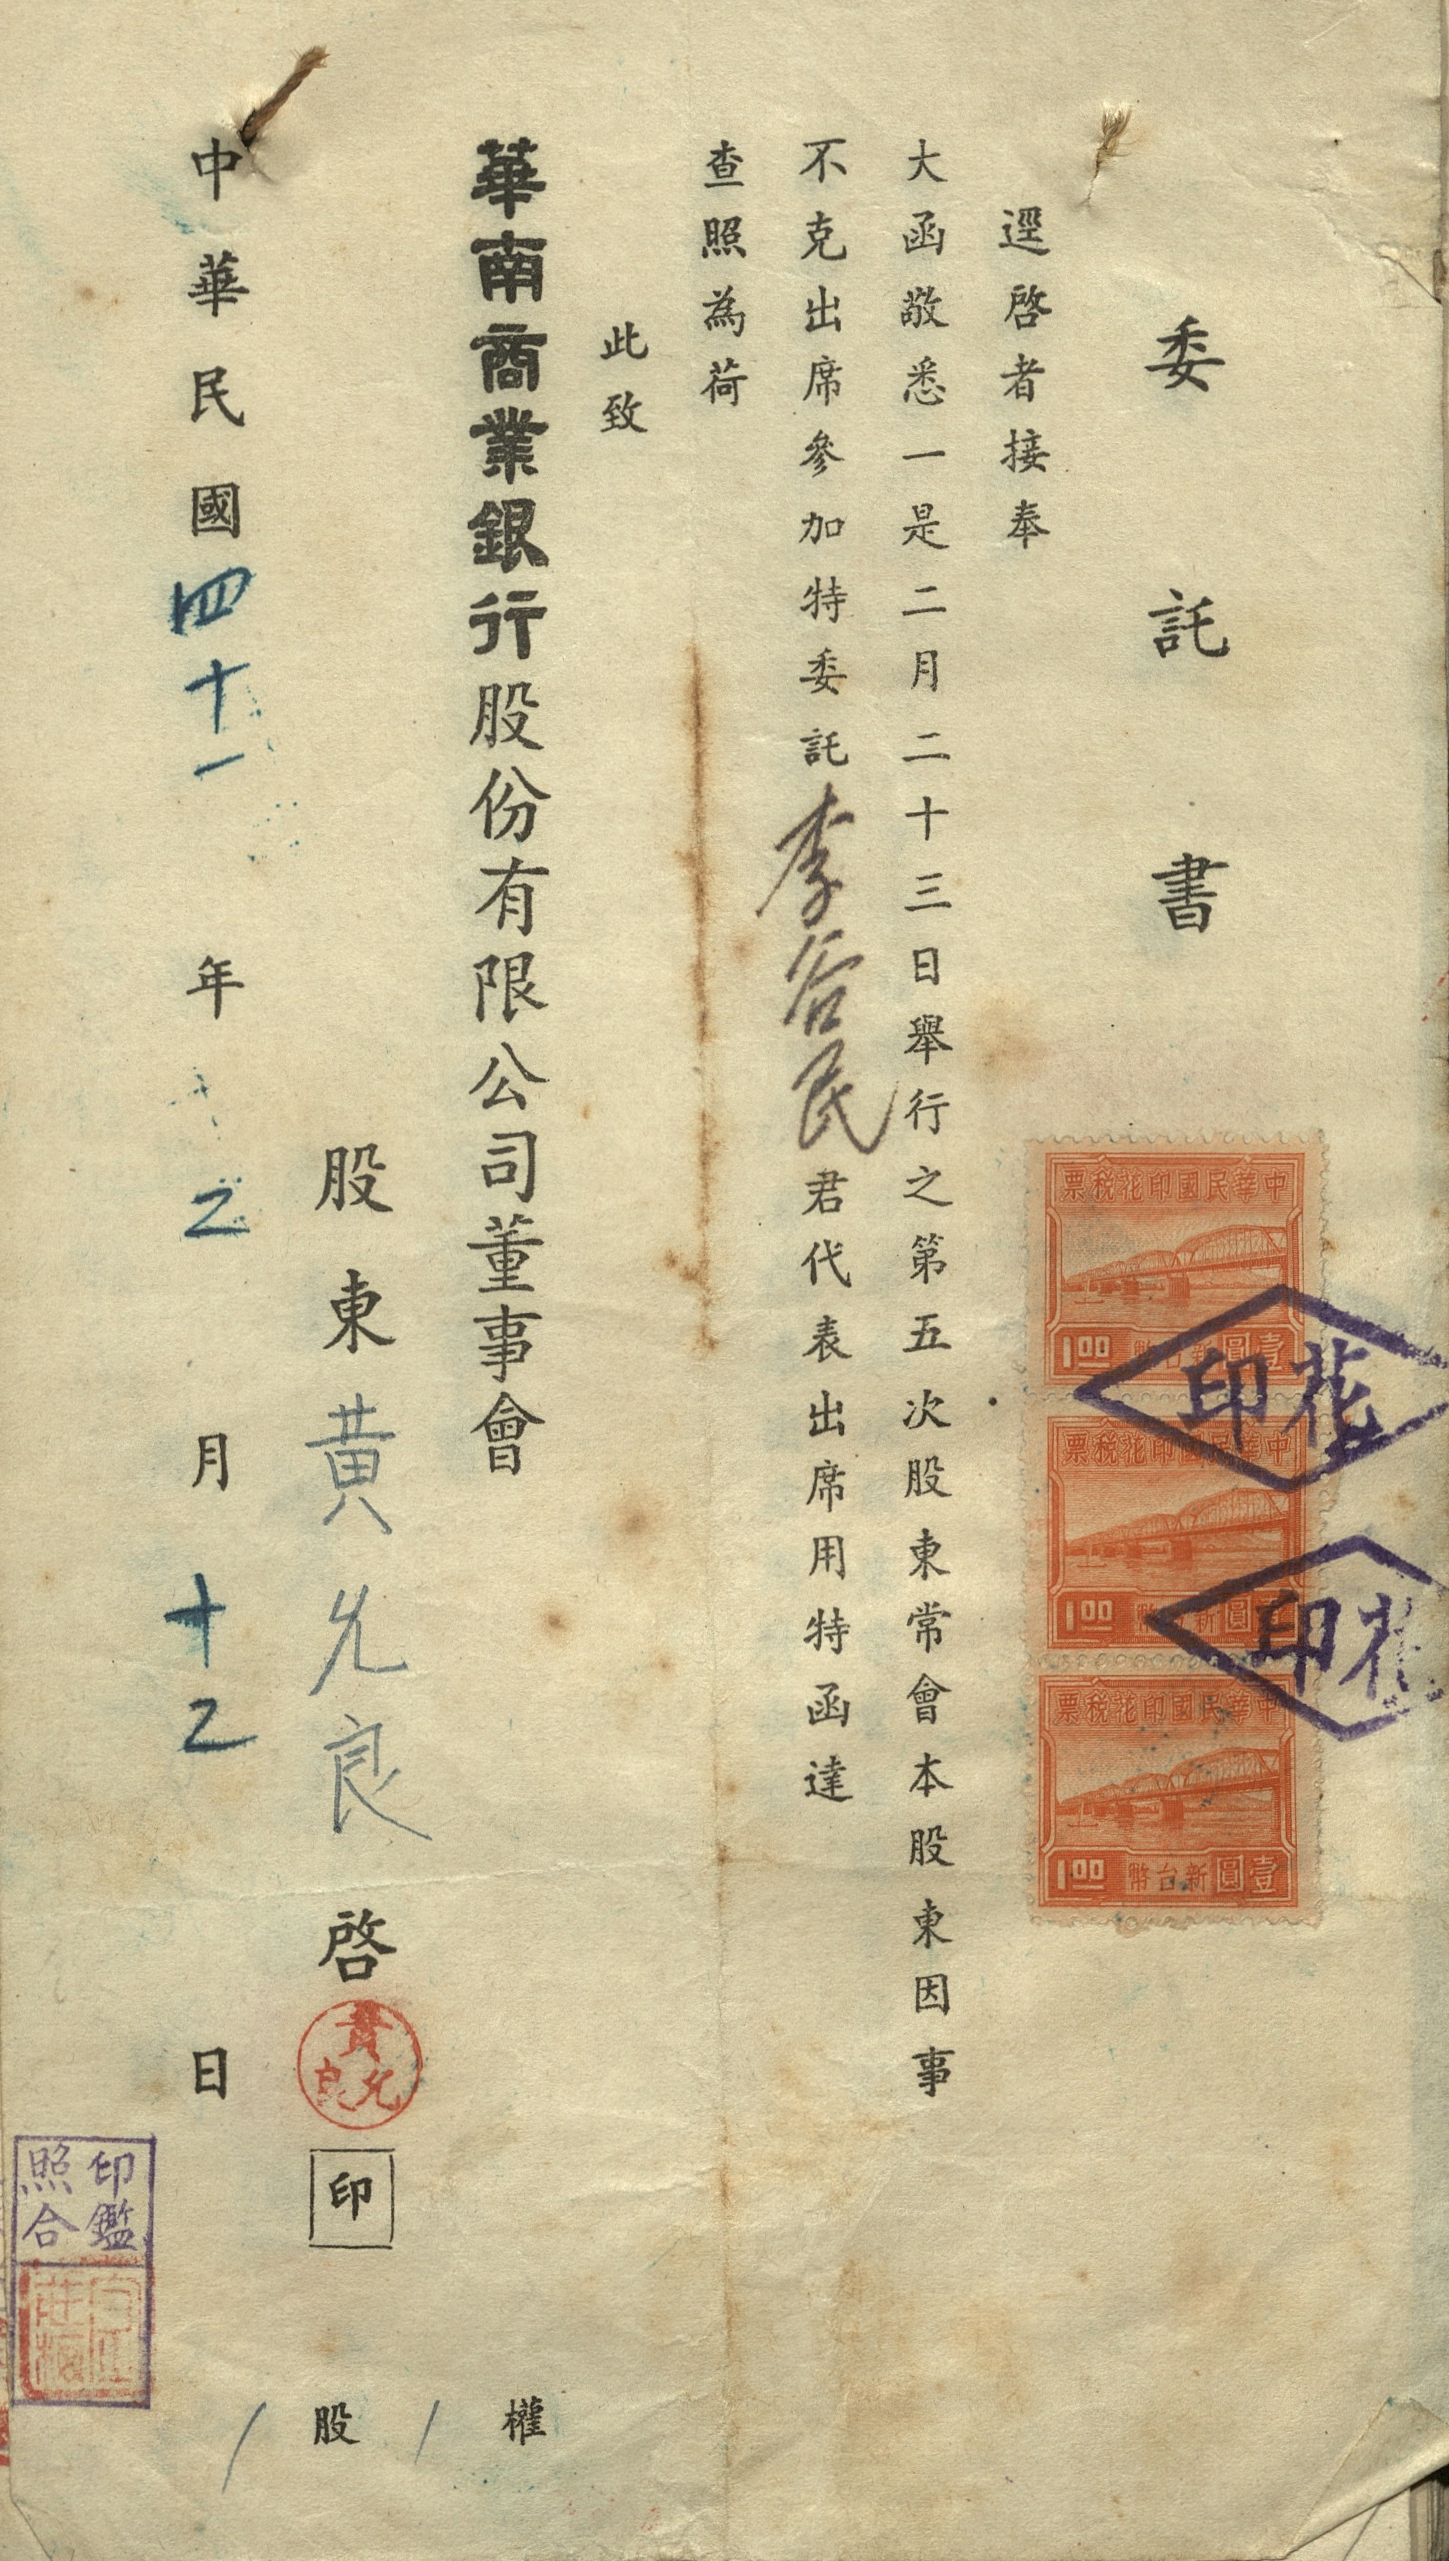 委託書
逕啓者接奉
大函敬悉一是二月二十三日舉行之第五次股東常會本股東因事
不克出席參加特委託李谷民君代表出席用特函達
查照為荷
此致
華南商業銀行股份有限公司董事會
股東黃允良啓
黃允良
印
中華民國四十一年2月十2日
權
1
股
1
印鑑
照合
中華民國印花税票
1.00 新台幣壹圓
花印
中華民國印花税票
1.00 新台幣壹圓
花印
中華民國印花税票
1.00 新台幣壹圓